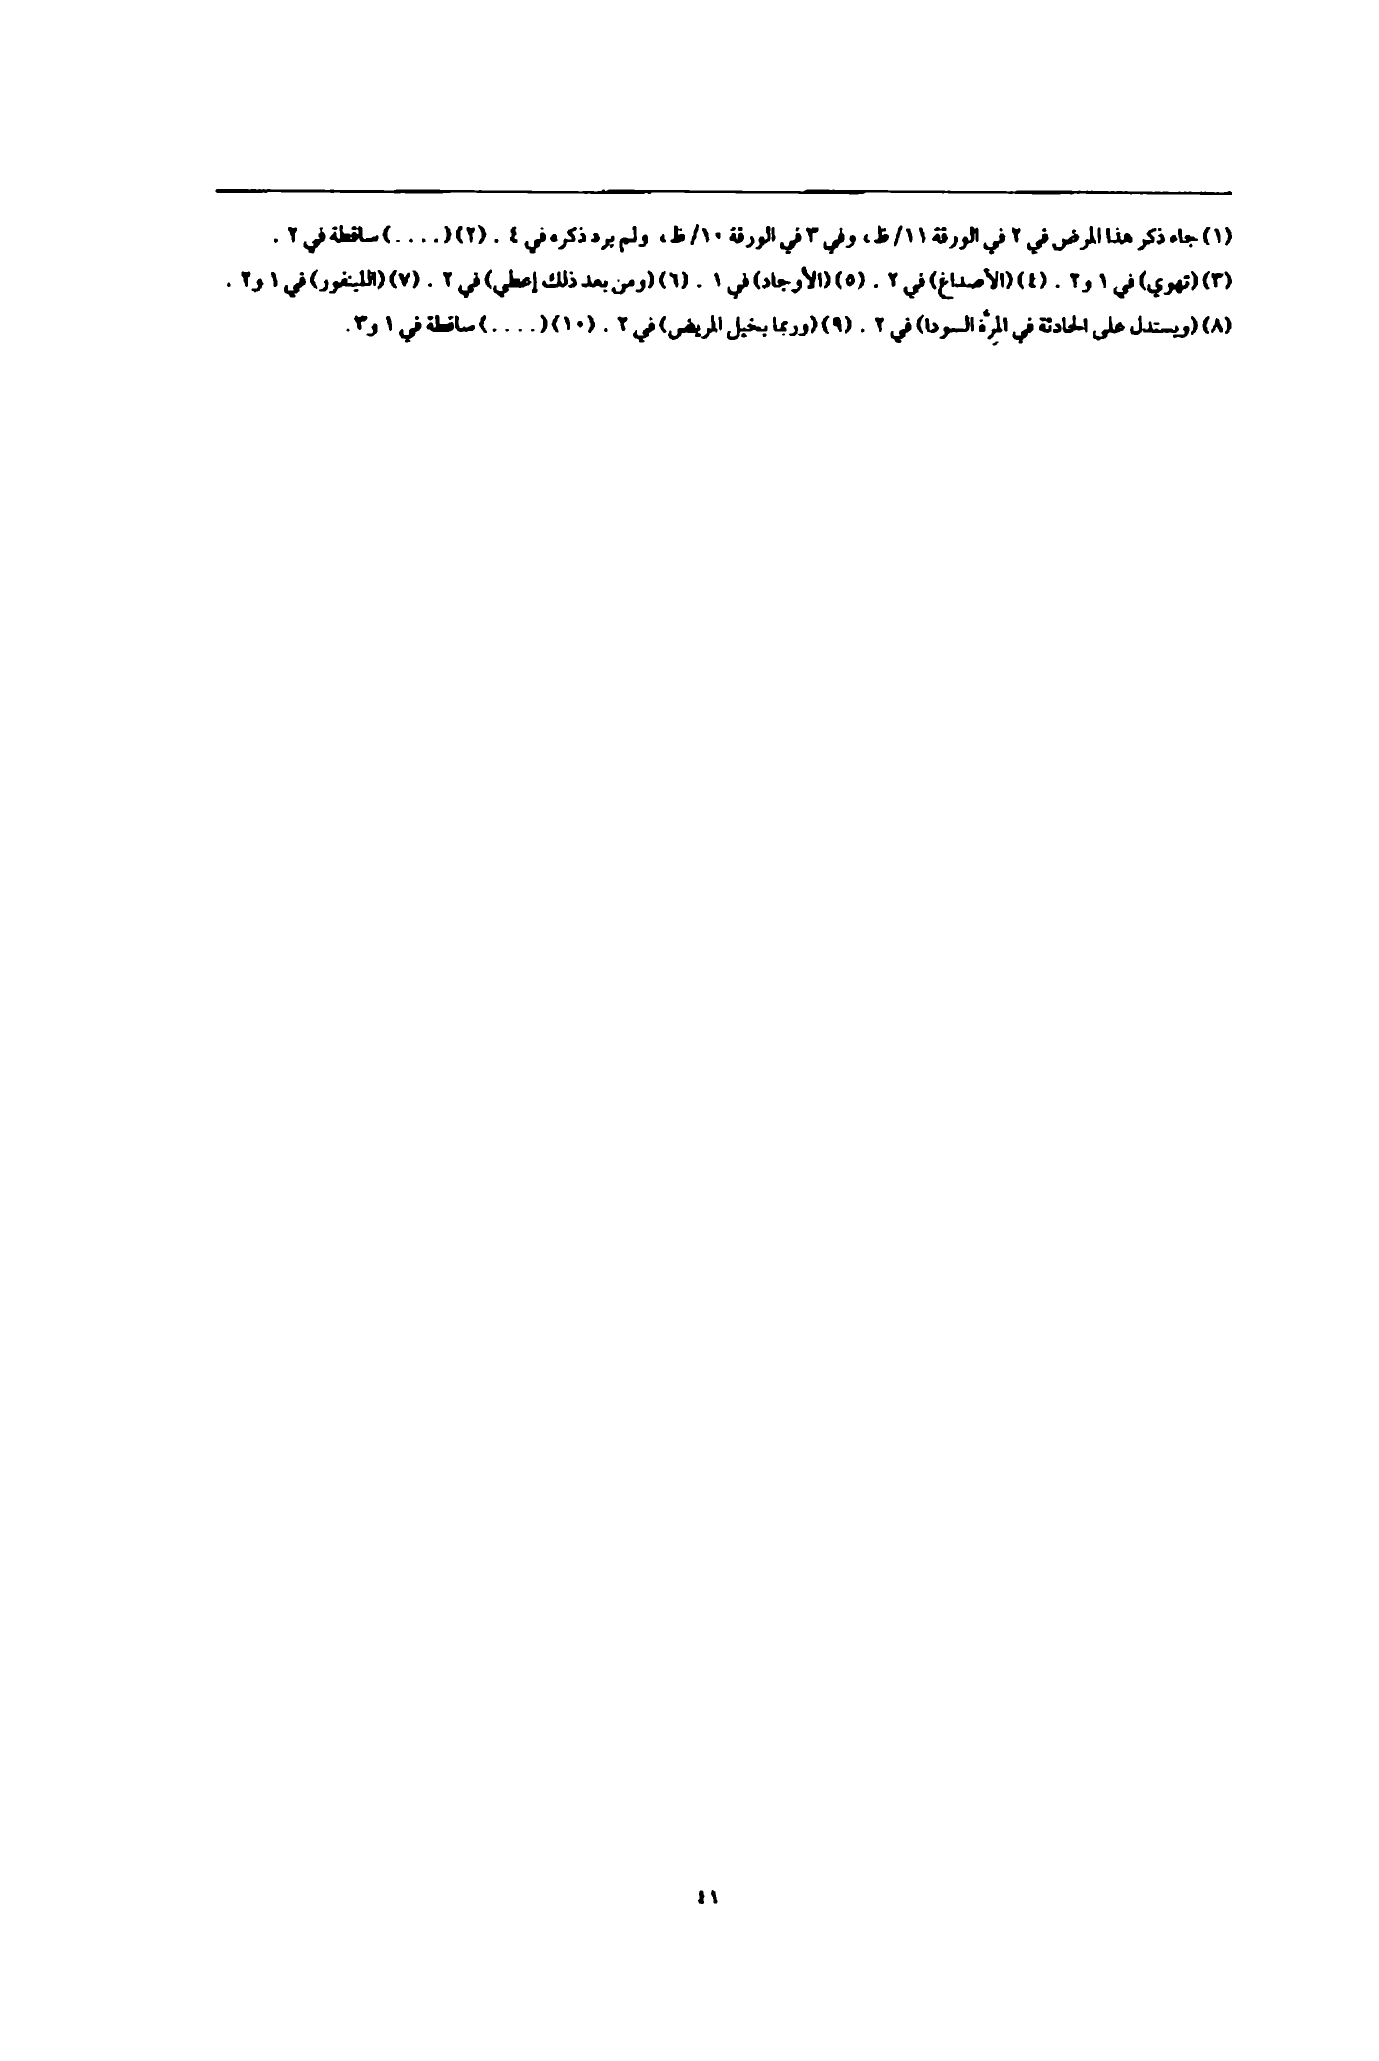 (١) جاء ذكر هذا المرض في ٢ في الورقة ١١/ ظ، وفي ٣ في الورقة ١٠/ ظ، ولم يرد ذكره في ٤ . (٢) (. . . .) ساقطة في ٢ .
(٣) (تهوي) في ١ و٢ . (٤) (الأصداغ) في ٢ . (٥) (الأوجاد) في ١ . (٦) (ومن بعد ذلك إعطي) في ٢ . (٧) (اللينفور) في ١ و٢ .
(٨) (ويستدل على الحادثة في المِرأة السودا) في ٢ . (٩) (وربما يخيل المريض) في ٢ . (١٠) (. . . .) ساقطة في ١ و٣.
٤١